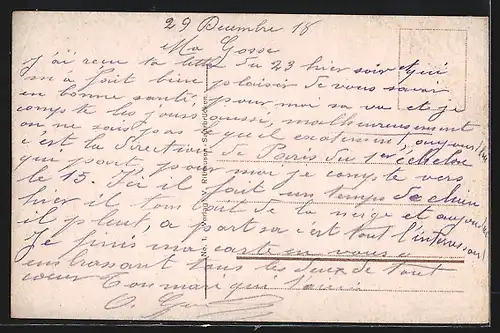 29 Decembre 18
Ma Gosse
J'ai reçu ta lettre du 23 hier soir et qui
m'a fait bien plaisir de vous savoir
en bonne santé, pour moi sa va et je
compte les jours aussi, malheureusement
on ne sais pas ce qu'il
c'est la directive de Paris du 1er échelon
que part, pour moi je compte vers
le 15. Ici il fait un temps de chien
hier il tombait de la neige et aujourd'hui
il pleut, a part sa c'est tout l'interessant
Je finis ma carte en vous
embrassant tous les deux de tout
coeur Ton mari que
No. 1. Konrad V. Ritthausen, Saarbrücken